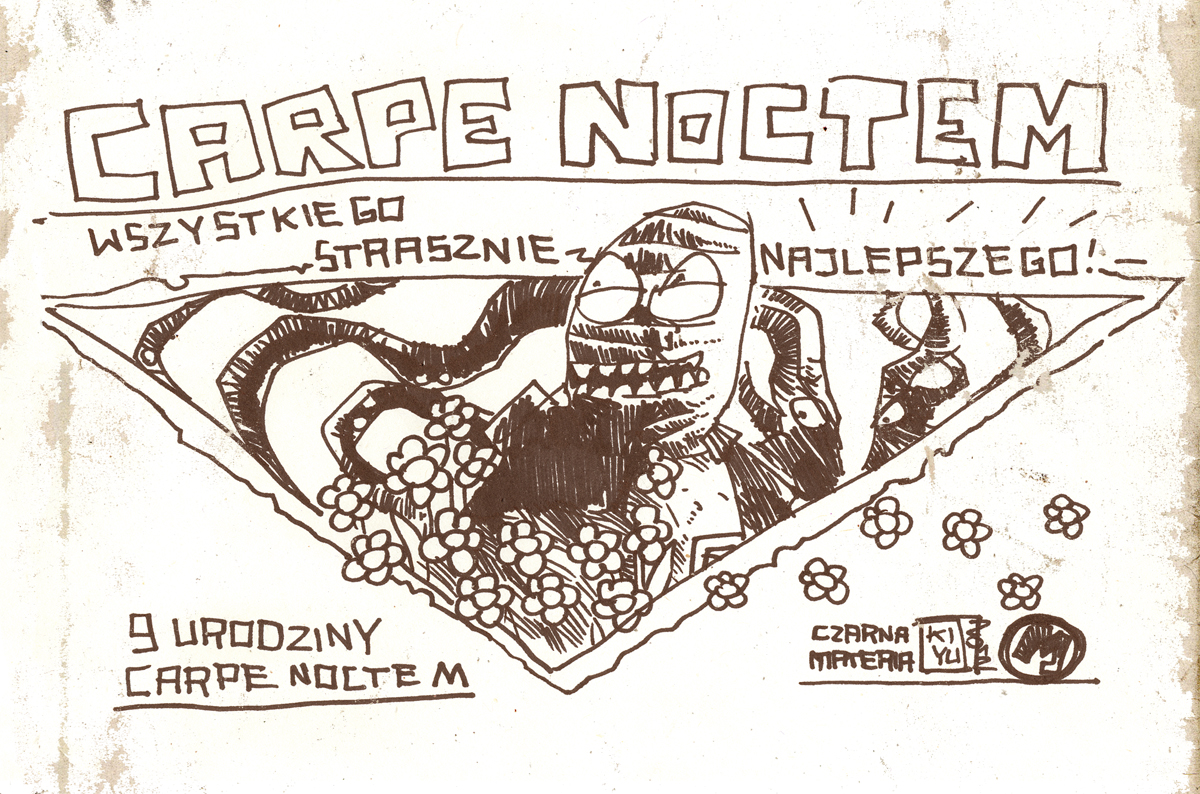 CARPE NOCTEM
WSZYSTKIEGO
STRASZNIE NAJLEPSZEGO!
9 URODZINY
CARPE NOCTEM
CZARNA
MATERIA
KI
YU